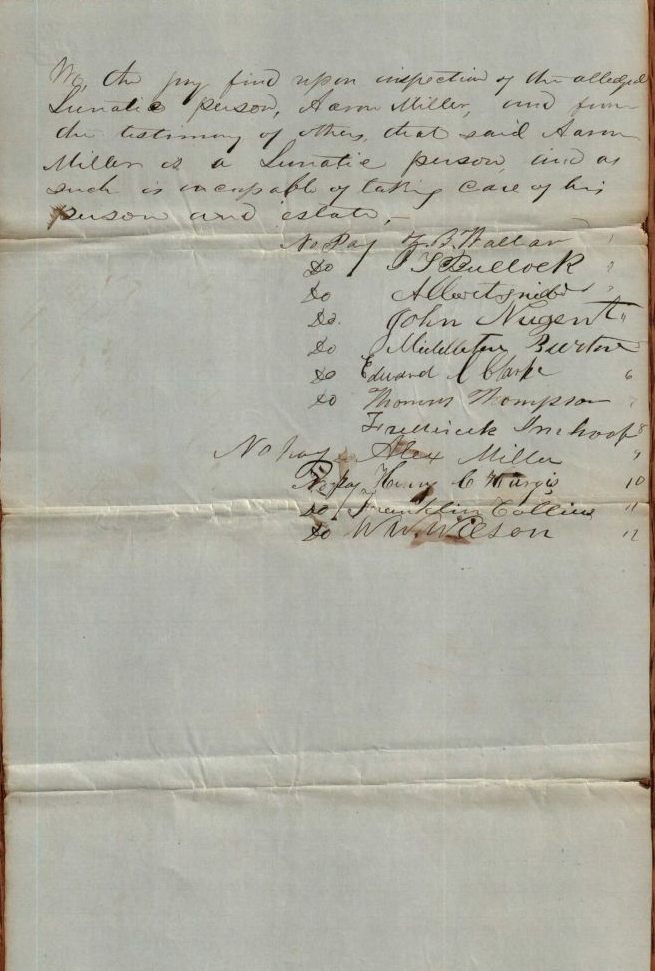 We, the jury find upon inspection of the alledged
Lunatic person, Aaron Miller, and from
the testimony of others, that said Aaron
Miller is a Lunatic person, and as
such is incapable of taking Care of his
person and estate,-
No Pay B. Wallar
Do Bullock
Do Albert
Do. John Nugent
Do Middleton Burton
Do Edward A Clarke 6
Do Thomas Thompson
Frederick Imhoof 8
No Pay Alex Miller 9
No Pay Henry C Sturgis 10
Do Franklin Collins 11
Do W W. Wilson 12